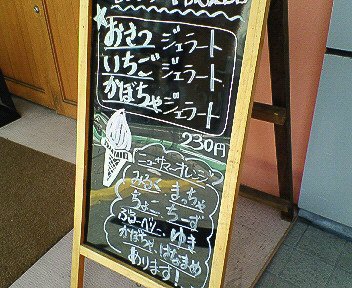 おさつ ジェラート
いちご ジェラート
かぼちゃ ジェラート
230円
ニューサマーオレンジ
みるく まっちゃ
ちょこ ちーず
ぶるーべりー ゆき
かぼちゃ はなまめ
あります!